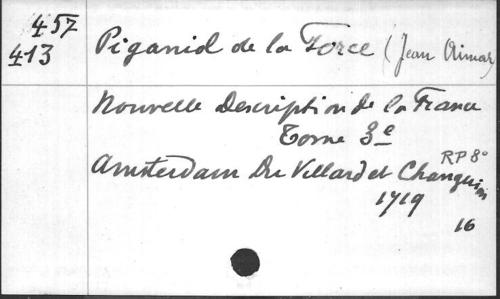 457
413
Piganiol de la Force (Jean Aimar)
Nouvelle Description de la France
Tome 3e
RP 8°
Amsterdam Du Villard et Changuion
1719
16